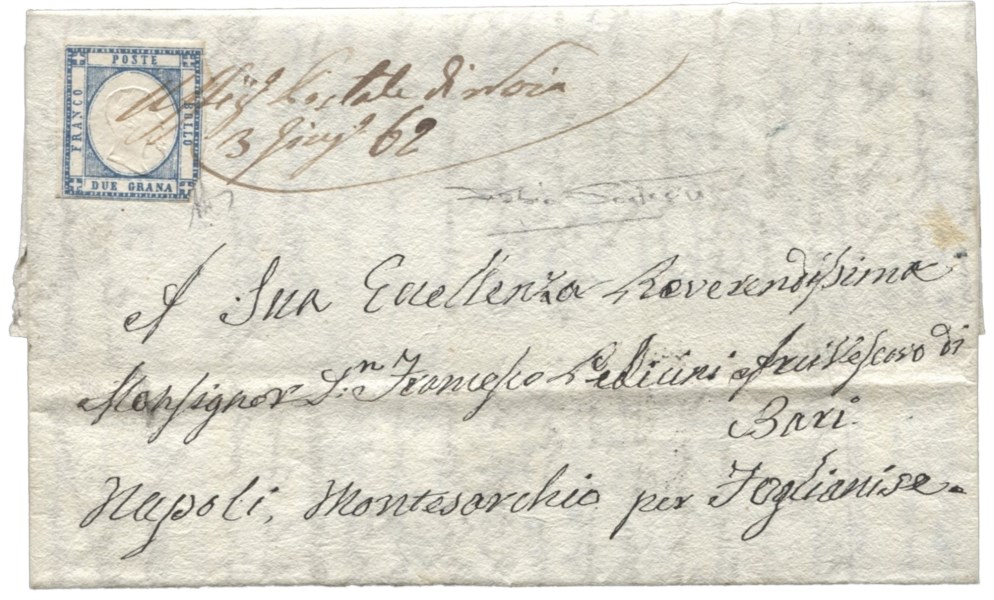 POSTE
FRANCO
BOLLO
DUE GRANA
Uffiz° Postale di Noia
3 Giug° 62
A Sua Eccellenza Reverendissima
Monsignor D.n Francesco Pedicini Arcivescovo di
Bari.
Napoli, Montesarchio per Foglianise.